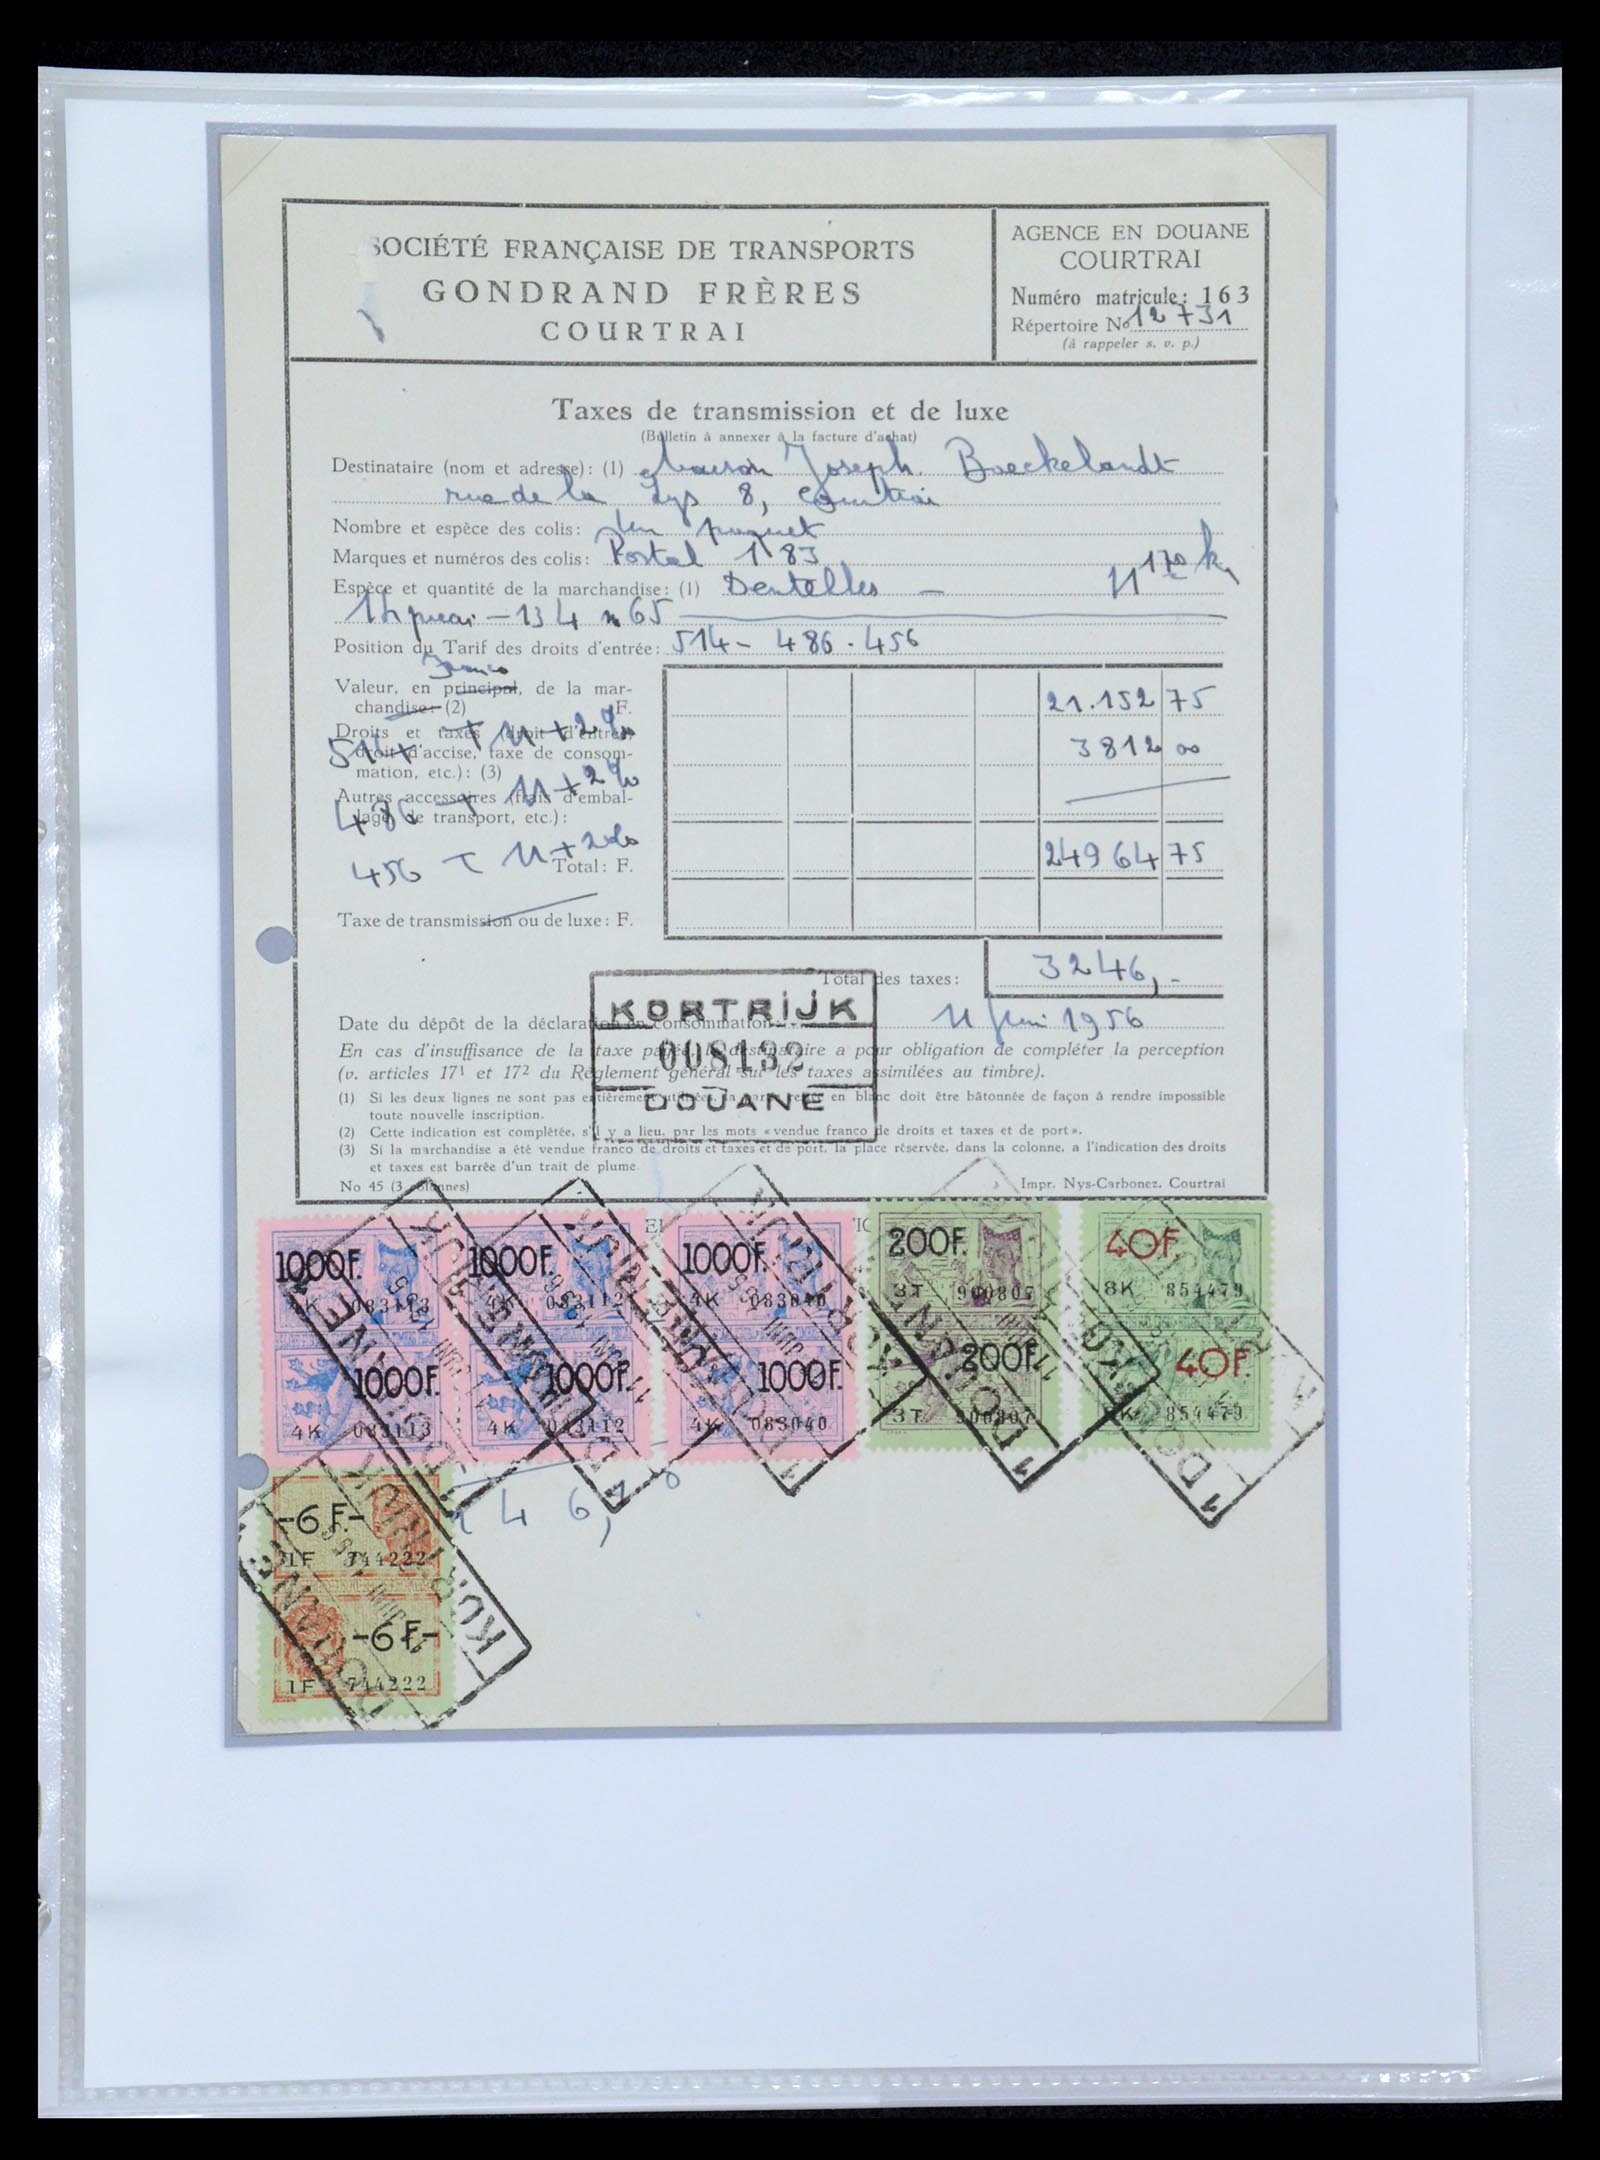 SOCIÉTÉ FRANÇAISE DE TRANSPORTS
GONDRAND FRÈRES
COURTRAI
AGENCE EN DOUANE
COURTRAI
Numéro matricule: 163
Répertoire No 12731
(à rappeler s. v. p.)
Taxes de transmission et de luxe
(Bulletin à annexer à la facture d'achat)
Destinataire (nom et adresse): (1) Maison Joseph Baeckelandt
rue de la Lys 8, Courtrai
Nombre et espèce des colis: Un paquet
Marques et numéros des colis: Postal 183
Espèce et quantité de la marchandise: (1) Dentelles — 11 170 k
134 m 65
Position du Tarif des droits d'entrée: 514 - 486 - 456
Franco
Valeur, en principal, de la mar-
chandise: (2) F. 21.152 75
Droits et taxes (droit d'entrée,
droit d'accise, taxe de consom- 3812 00
mation, etc.): (3)
514 → 11 + 2%
Autres accessoires (frais d'embal-
lage, de transport, etc.):
486 → 11 + 2%
456 - 11 + 2%
Total: F. 24964 75
Taxe de transmission ou de luxe: F.
Total des taxes: 3246,-
Date du dépôt de la déclaration en consommation 11 juin 1956
KORTRIJK
008132
DOUANE
En cas d'insuffisance de la taxe payée, le destinataire a pour obligation de compléter la perception
(v. articles 17¹ et 17² du Règlement général sur les taxes assimilées au timbre).
(1) Si les deux lignes ne sont pas entièrement utilisées, la partie restée en blanc doit être bâtonnée de façon à rendre impossible
toute nouvelle inscription.
(2) Cette indication est complétée, s'il y a lieu, par les mots «vendue franco de droits et taxes et de port».
(3) Si la marchandise a été vendue franco de droits et taxes et de port, la place réservée, dans la colonne, a l'indication des droits
et taxes est barrée d'un trait de plume.
No 45 (3 colonnes) Impr. Nys-Carbonez. Courtrai
1000F. 1000F. 1000F. 200F. 40F.
4K 083113 4K 083112 4K 083040 3T 900807 8K 854479
1000F. 1000F. 1000F. 200F. 40F.
4K 083113 4K 083112 4K 083040 3T 900807 8K 854479
KORTRIJK
DOUANE 1
-6F.-
1F 744222
-6F-
1F 744222
KORTRIJK
DOUANE